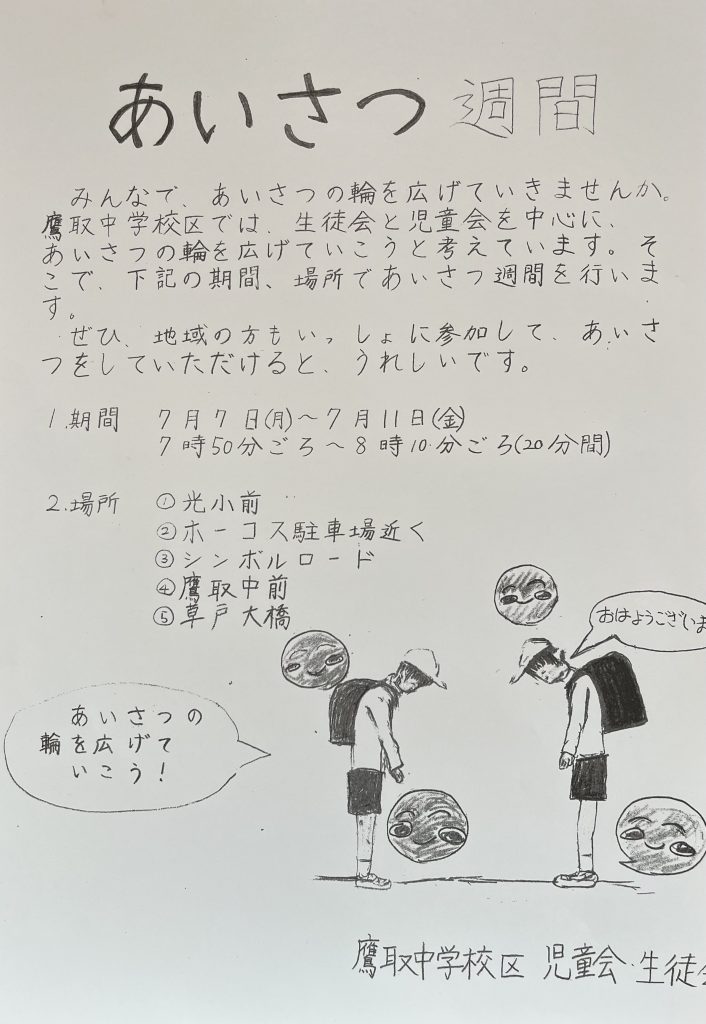 あいさつ週間
みんなで、あいさつの輪を広げていきませんか。
鷹取中学校区では、生徒会と児童会を中心に、
あいさつの輪を広げていこうと考えています。そ
こで、下記の期間、場所であいさつ週間を行いま
す。
ぜひ、地域の方もいっしょに参加して、あいさ
つをしていただけると、うれしいです。
1.期間 7月7日(月)～7月11日(金)
7時50分ごろ～8時10分ごろ(20分間)
2.場所 ①光小前
②ホーコス駐車場近く
③シンボルロード
④鷹取中前
⑤草戸大橋
おはようございま
あいさつの
輪を広げて
いこう!
鷹取中学校区 児童会・生徒会